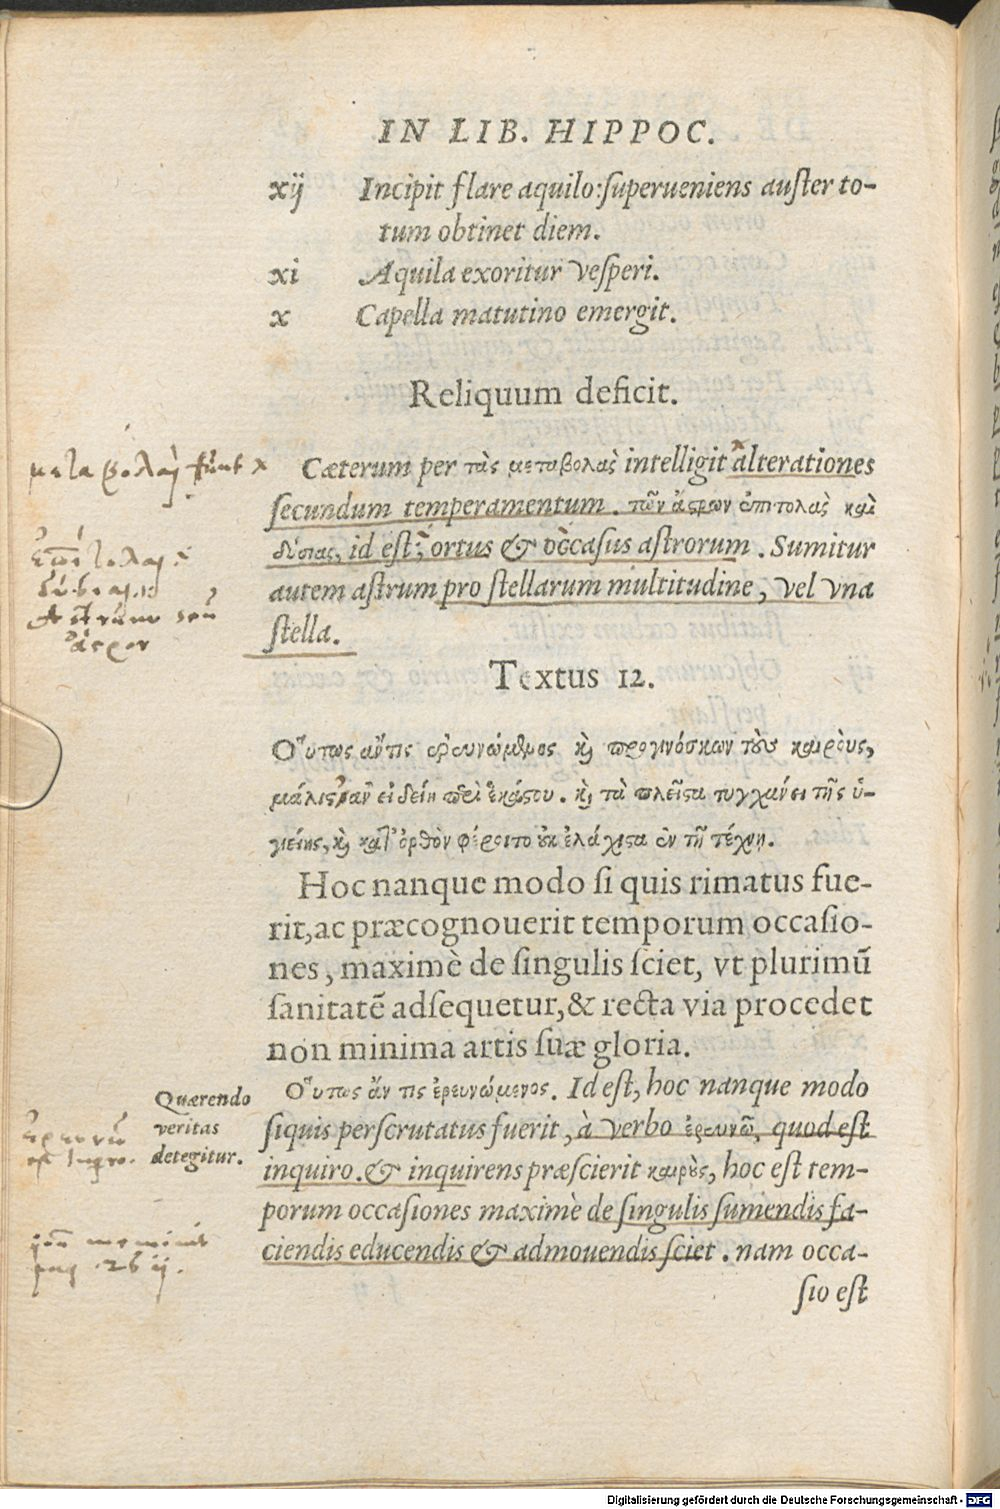 IN LIB. HIPPOC.
xij Incipit flare aquilo: superueniens auster to-
tum obtinet diem.
xi Aquila exoritur vesperi.
x Capella matutino emergit.
Reliquum deficit.
Cæterum per τὰς μεταβολὰς intelligit alterationes
secundum temperamentum. τῶν ἄςρων ἐπιτολὰς καὶ
δύσιας, id est, ortus & occasus astrorum. Sumitur
autem astrum pro stellarum multitudine, vel vna
stella.
Textus 12.
Οὕτως ἄν τις ἐρευνώμενος καὶ προγινόσκων τοὺς καιροὺς,
μάλιςτ' ἂν εἰδείη περὶ ἑκάςου. καὶ τὰ πλεῖςα τυγχάνει τῆς ὑ-
γιείης, καὶ κατ' ὀρθὸν φέροιτο οὐκ ἐλάχιςα ἐν τῇ τέχνῃ.
Hoc nanque modo si quis rimatus fue-
rit, ac præcognouerit temporum occasio-
nes, maximè de singulis sciet, vt plurimū
sanitatē adsequetur, & recta via procedet
non minima artis suæ gloria.
Οὕτως ἄν τις ἐρευνώμενος. Id est, hoc nanque modo
Quærendo
veritas
detegitur.
siquis perscrutatus fuerit, à verbo ἐρευνῶ, quod est
inquiro. & inquirens præscierit καιροὺς, hoc est tem-
porum occasiones maximè de singulis sumendis fa-
ciendis educendis & admouendis sciet. nam occa-
sio est
Digitalisierung gefördert durch die Deutsche Forschungsgemeinschaft - DFG